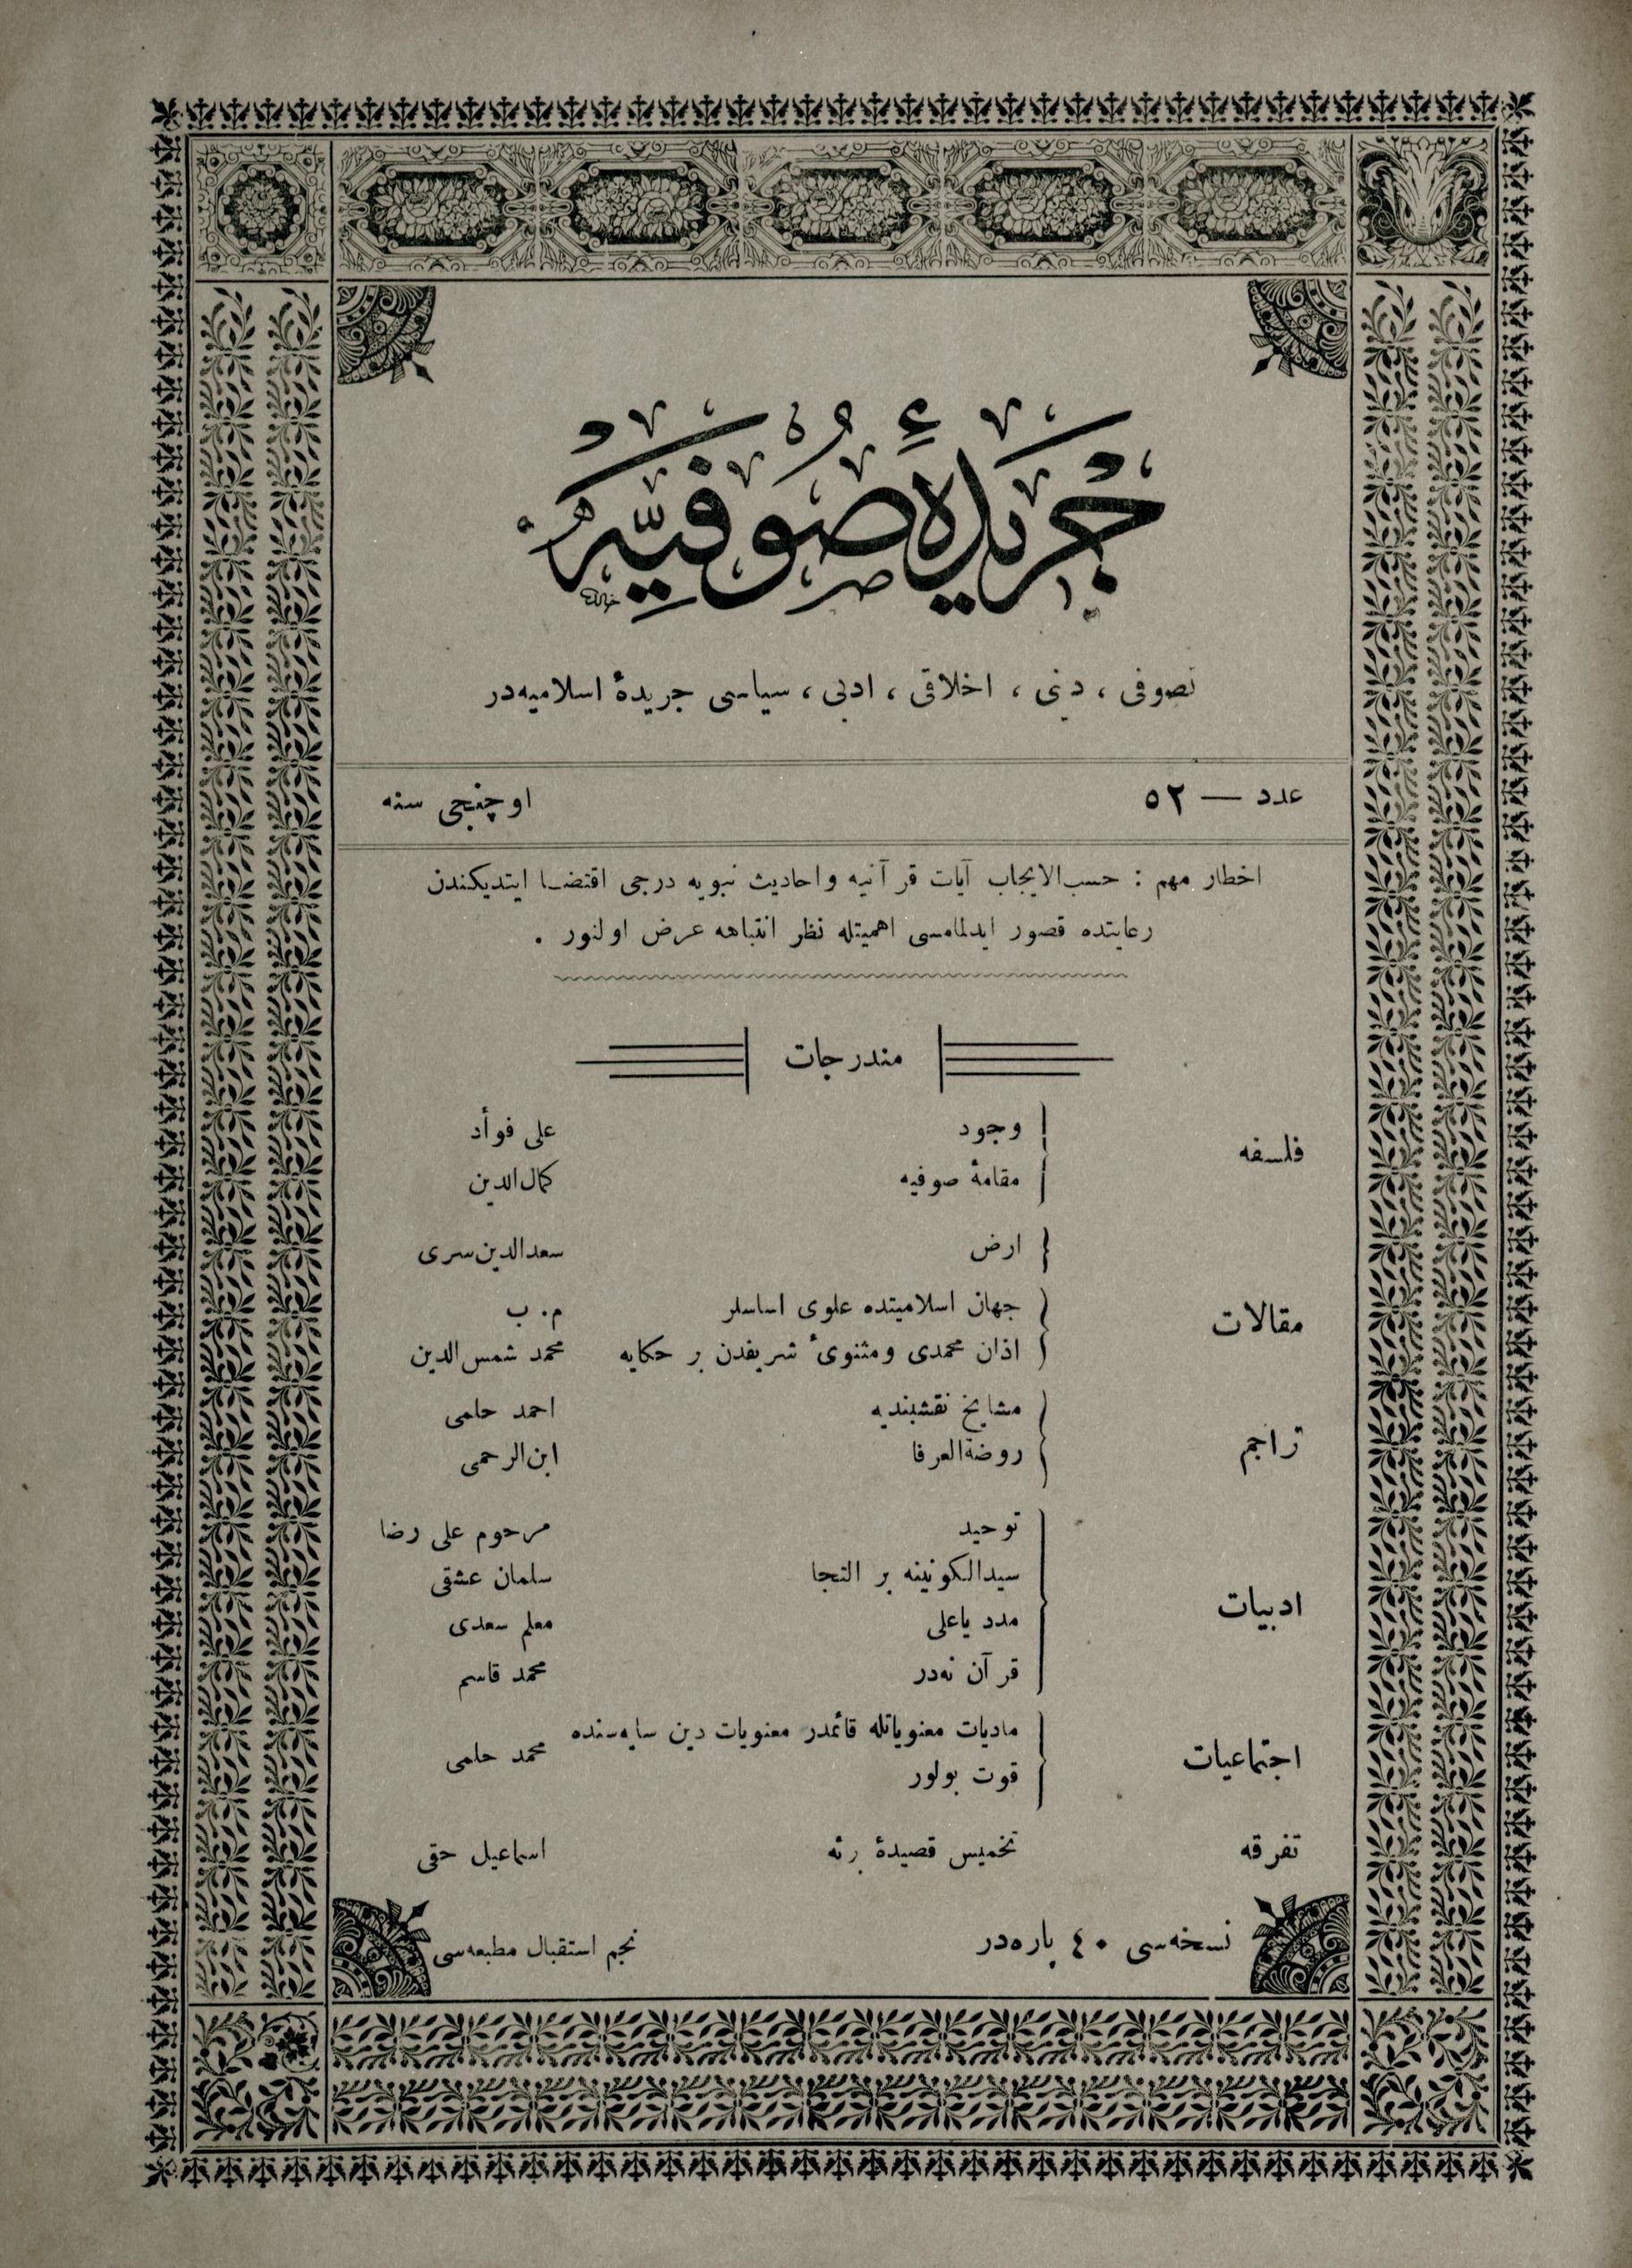 جريدۀ صوفيه
تصوفی ، دینی ، اخلاقی ، ادبی ، سیاسی جریدۀ اسلامیه‌در
عدد — ٥٢
اوچنجی سنه
اخطار مهم : حسب‌الایجاب آیات قرآنیه واحادیث نبویه درجی اقتضا ایتدیکندن
رعایتده قصور ایدلمامسی اهمیتله نظر انتباهه عرض اولنور .
مندرجات
فلسفه
وجود علی فوأد
مقامۀ صوفیه کمال‌الدین
مقالات
ارض سعدالدین‌سری
جهان اسلامیتده علوی اساسلر م . ب
اذان محمدی ومثنوئ شریفدن بر حکایه محمد شمس‌الدین
تراجم
مشایخ نقشبندیه احمد حلمی
روضة‌العرفا ابن‌الرحمی
ادبیات
توحید مرحوم علی رضا
سیدالکونینه بر التجا سلمان عشقی
مدد یاعلی معلم سعدی
قرآن نه‌در محمد قاسم
اجتماعیات
مادیات معنویاتله قائمدر معنویات دین سایه‌سنده
قوت بولور محمد حلمی
تفرقه تخمیس قصیدۀ اسماعیل حقی
نسخه‌سی ٤٠ پاره‌در
نجم استقبال مطبعه‌سی